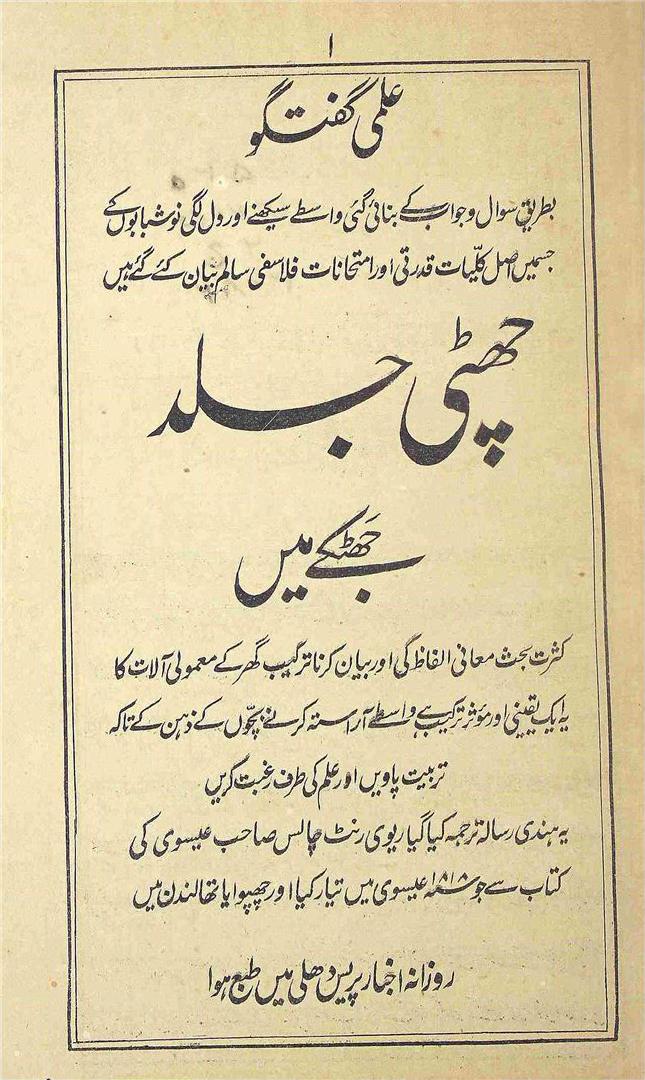 ۱
علمی گفتگو
بطریق سوال وجواب کے بنائی گئی واسطے سیکھنے اور دل لگی نوشبابوں کے
جسمیں اصل کلّیات قدرتی اور امتحانات فلاسفی سالم بیان کئے گئے ہیں
چھٹی جلد
جھٹکے میں
کثرت بحث معانی الفاظ کی اور بیان کرنا ترکیب گھر کے معمولی آلات کا
یہ ایک یقینی اور مؤثر ترکیب ہے واسطے آراستہ کرنے بچّوں کے ذہن کے تاکہ
تربیت پاویں اور علم کی طرف رغبت کریں
یہ ہندی رسالہ ترجمہ کیا گیا ریوی رنٹ چالس صاحب عیسوی کی
کتاب سے جو ۱۸۱۸ عیسوی میں تیار کیا اور چھپوایا تھا لندن میں
روزانہ اخبار پریس دھلی میں طبع ہوا